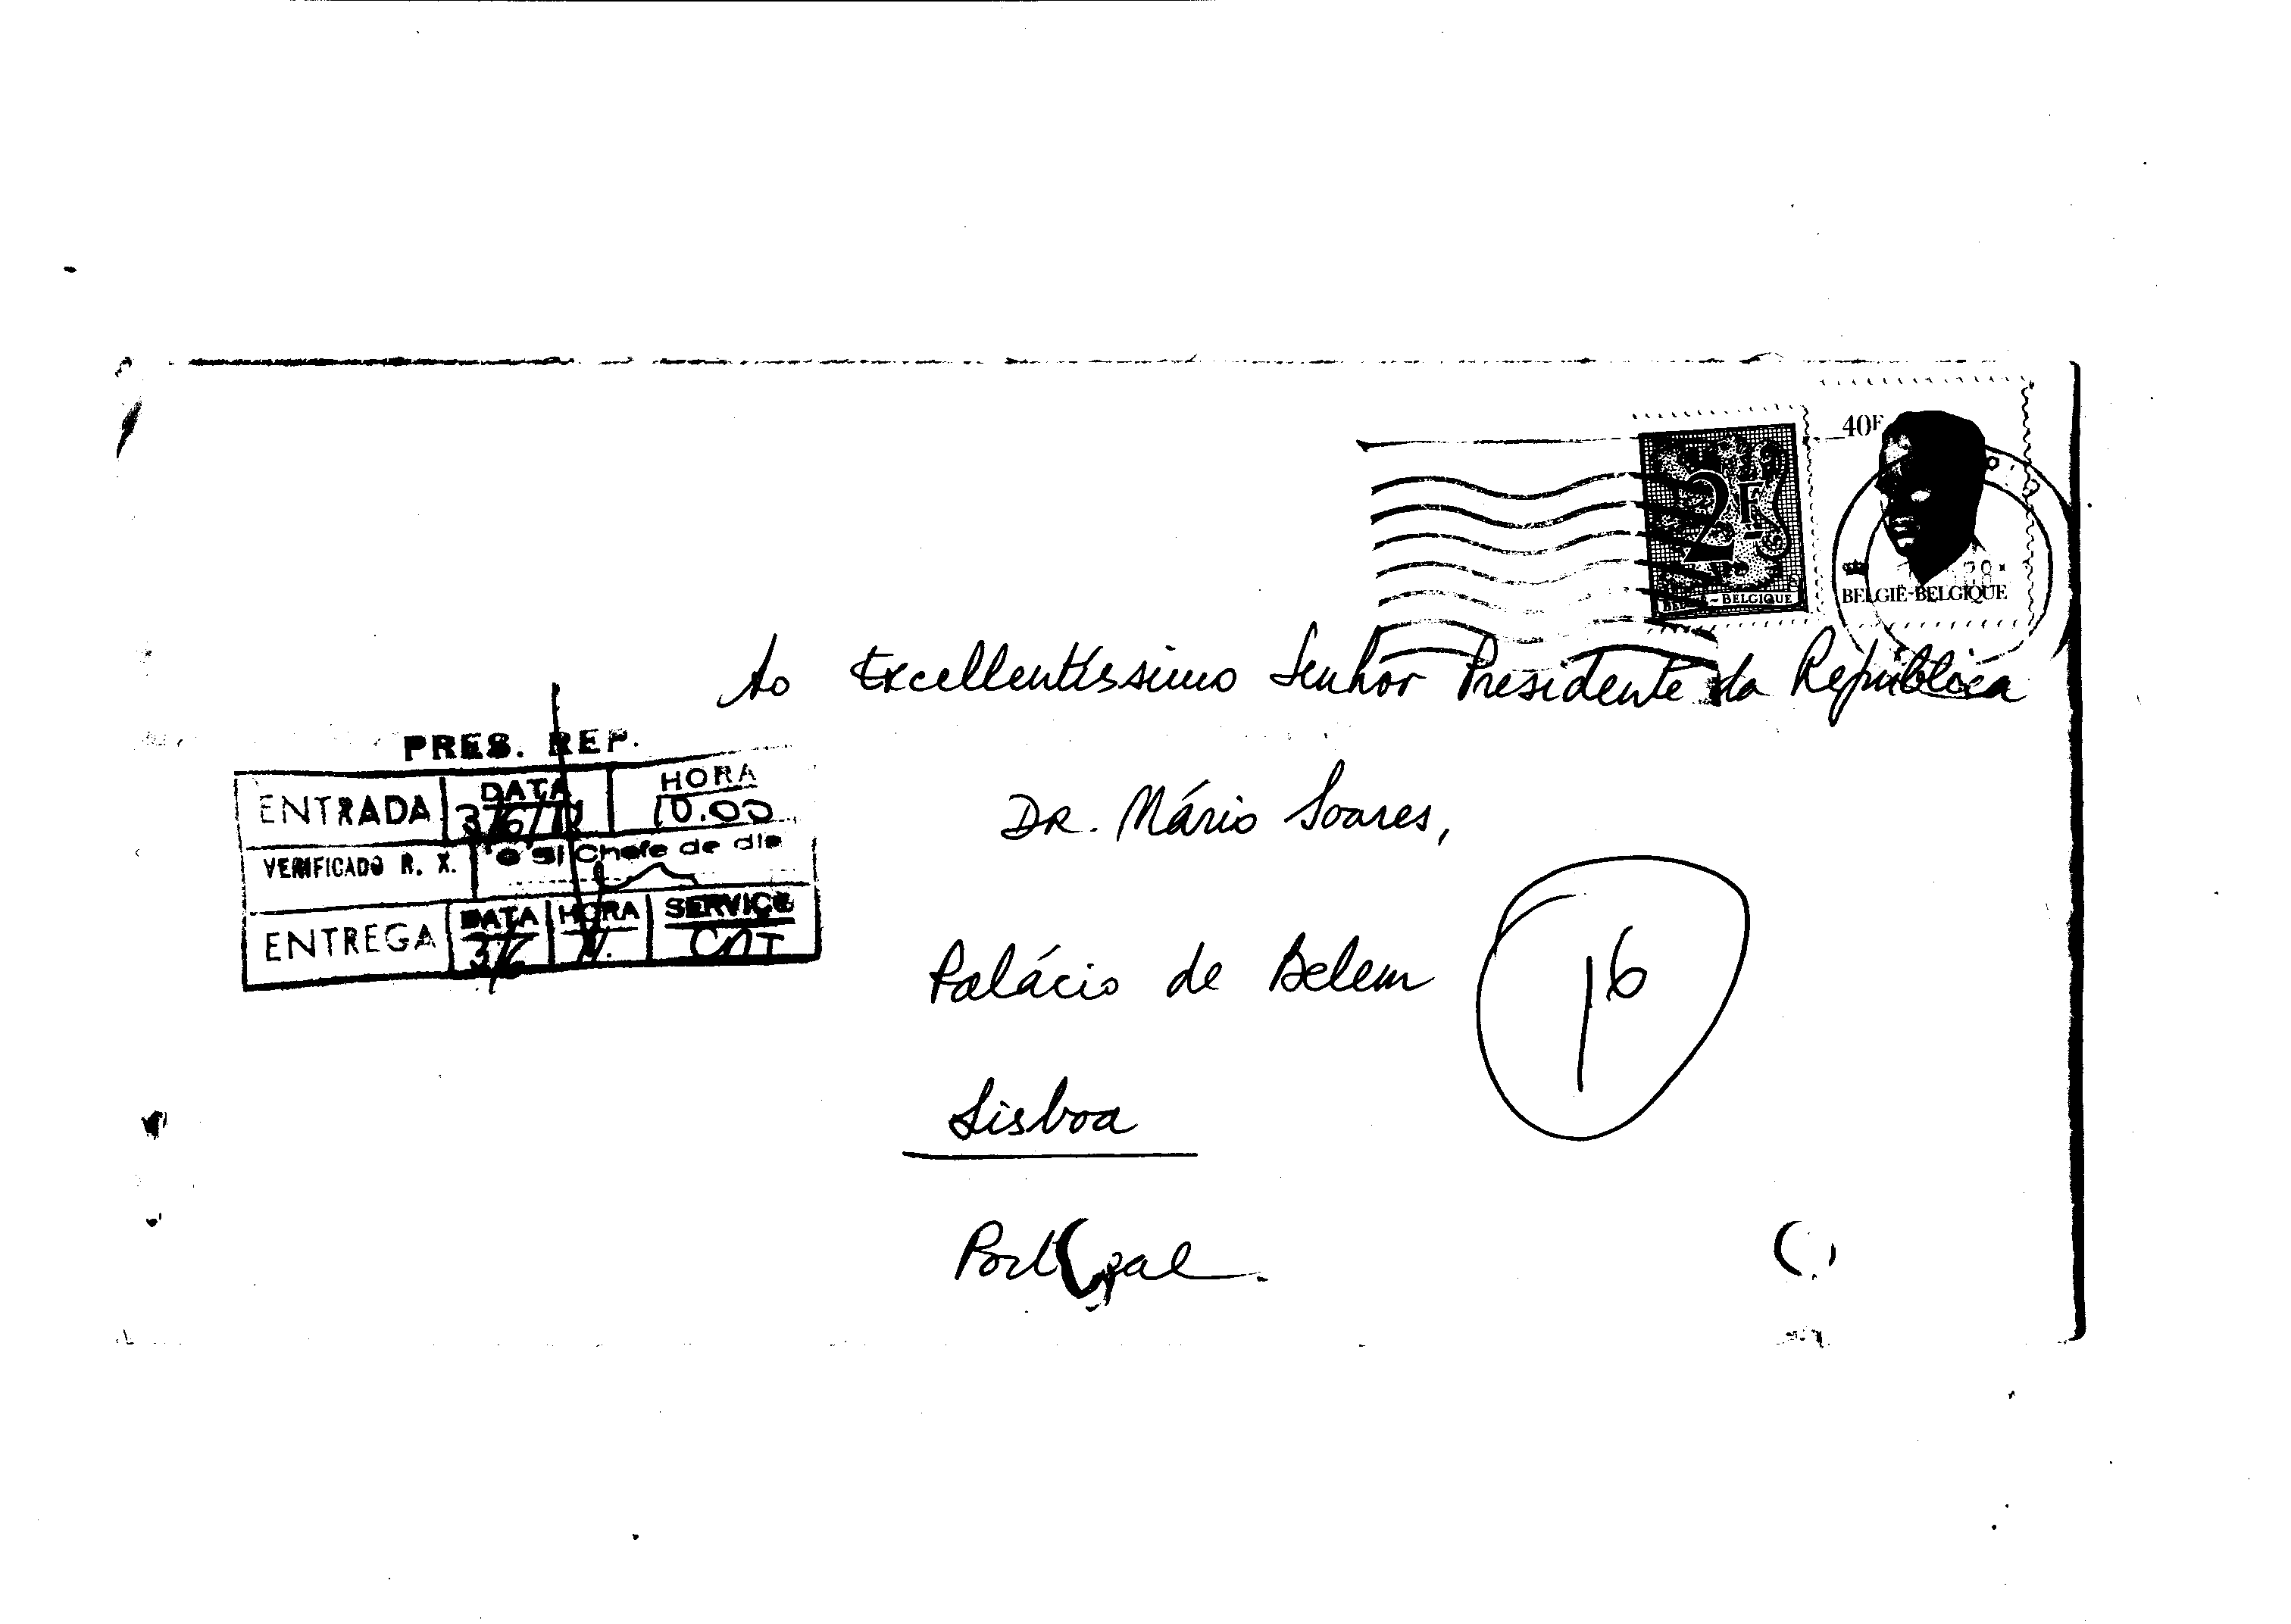 40F
2F
BELGIË-BELGIQUE
- BELGIQUE
Ao Excellentíssimo Senhor Presidente da República
PRES. REP.
ENTRADA DATA 3/6/ HORA 10.00
VERIFICADO R. X. O S/ Chefe de dia
ENTREGA DATA 3/6 HORA SERVIÇO
DR. Mário Soares,
Palácio de Belem
16
Lisboa
Portugal.